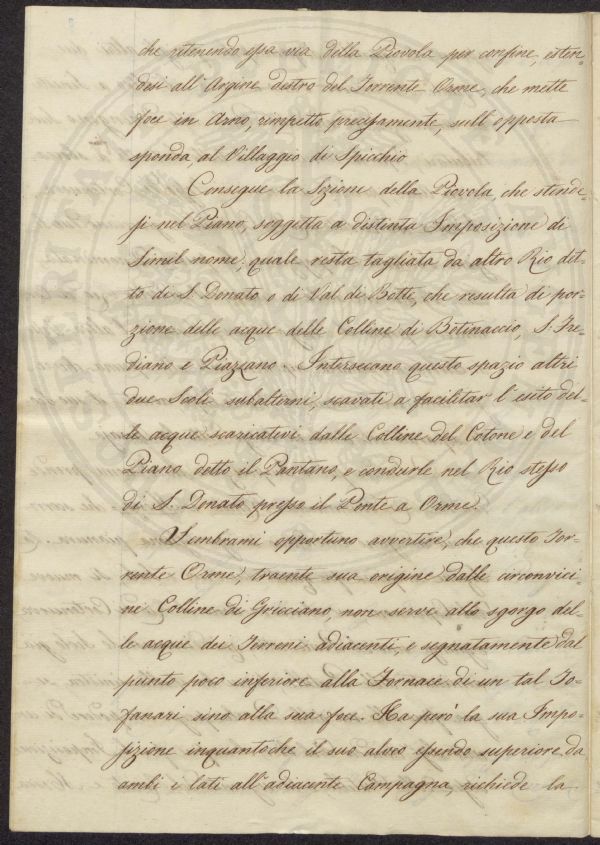 che ritenendo essa via della Piovola per confine, esten=
desi all'Argine destro del Torrente Orme, che mette
foce in Arno, rimpetto precisamente, sull'opposta
sponda, al Villaggio di Spicchio
Consegue la Sezione della Piovola, che stende=
si nel Piano, soggetta a distinta Imposizione di
Simil nome, quale resta tagliata da altro Rio det=
to di S. Donato o di Val di Botte, che resulta di por=
zione delle acque delle Colline di Botinaccio, S. Fre=
diano e Piazzano. Intersecano questo spazio altri
due Scoli subalterni, scavati a facilitar l'esito del=
le acque scaricatevi dalle Colline del Cotone e del
Piano detto il Pantano, e condurle nel Rio stesso
di S. Donato presso il Ponte a Orme.
Sembrami opportuno avvertire, che questo Tor=
rente Orme, traente sua origine dalle circonvici=
ne Colline di Gricciano, non serve allo sgorgo del=
le acque dei Terreni adiacenti, e segnatamente dal
punto poco inferiore alla Fornace di un tal To=
fanari sino alla sua foce. Ha però la sua Impo=
sizione inquantoche il suo alveo essendo superiore da
ambi i lati all'adiacente Campagna, richiede la